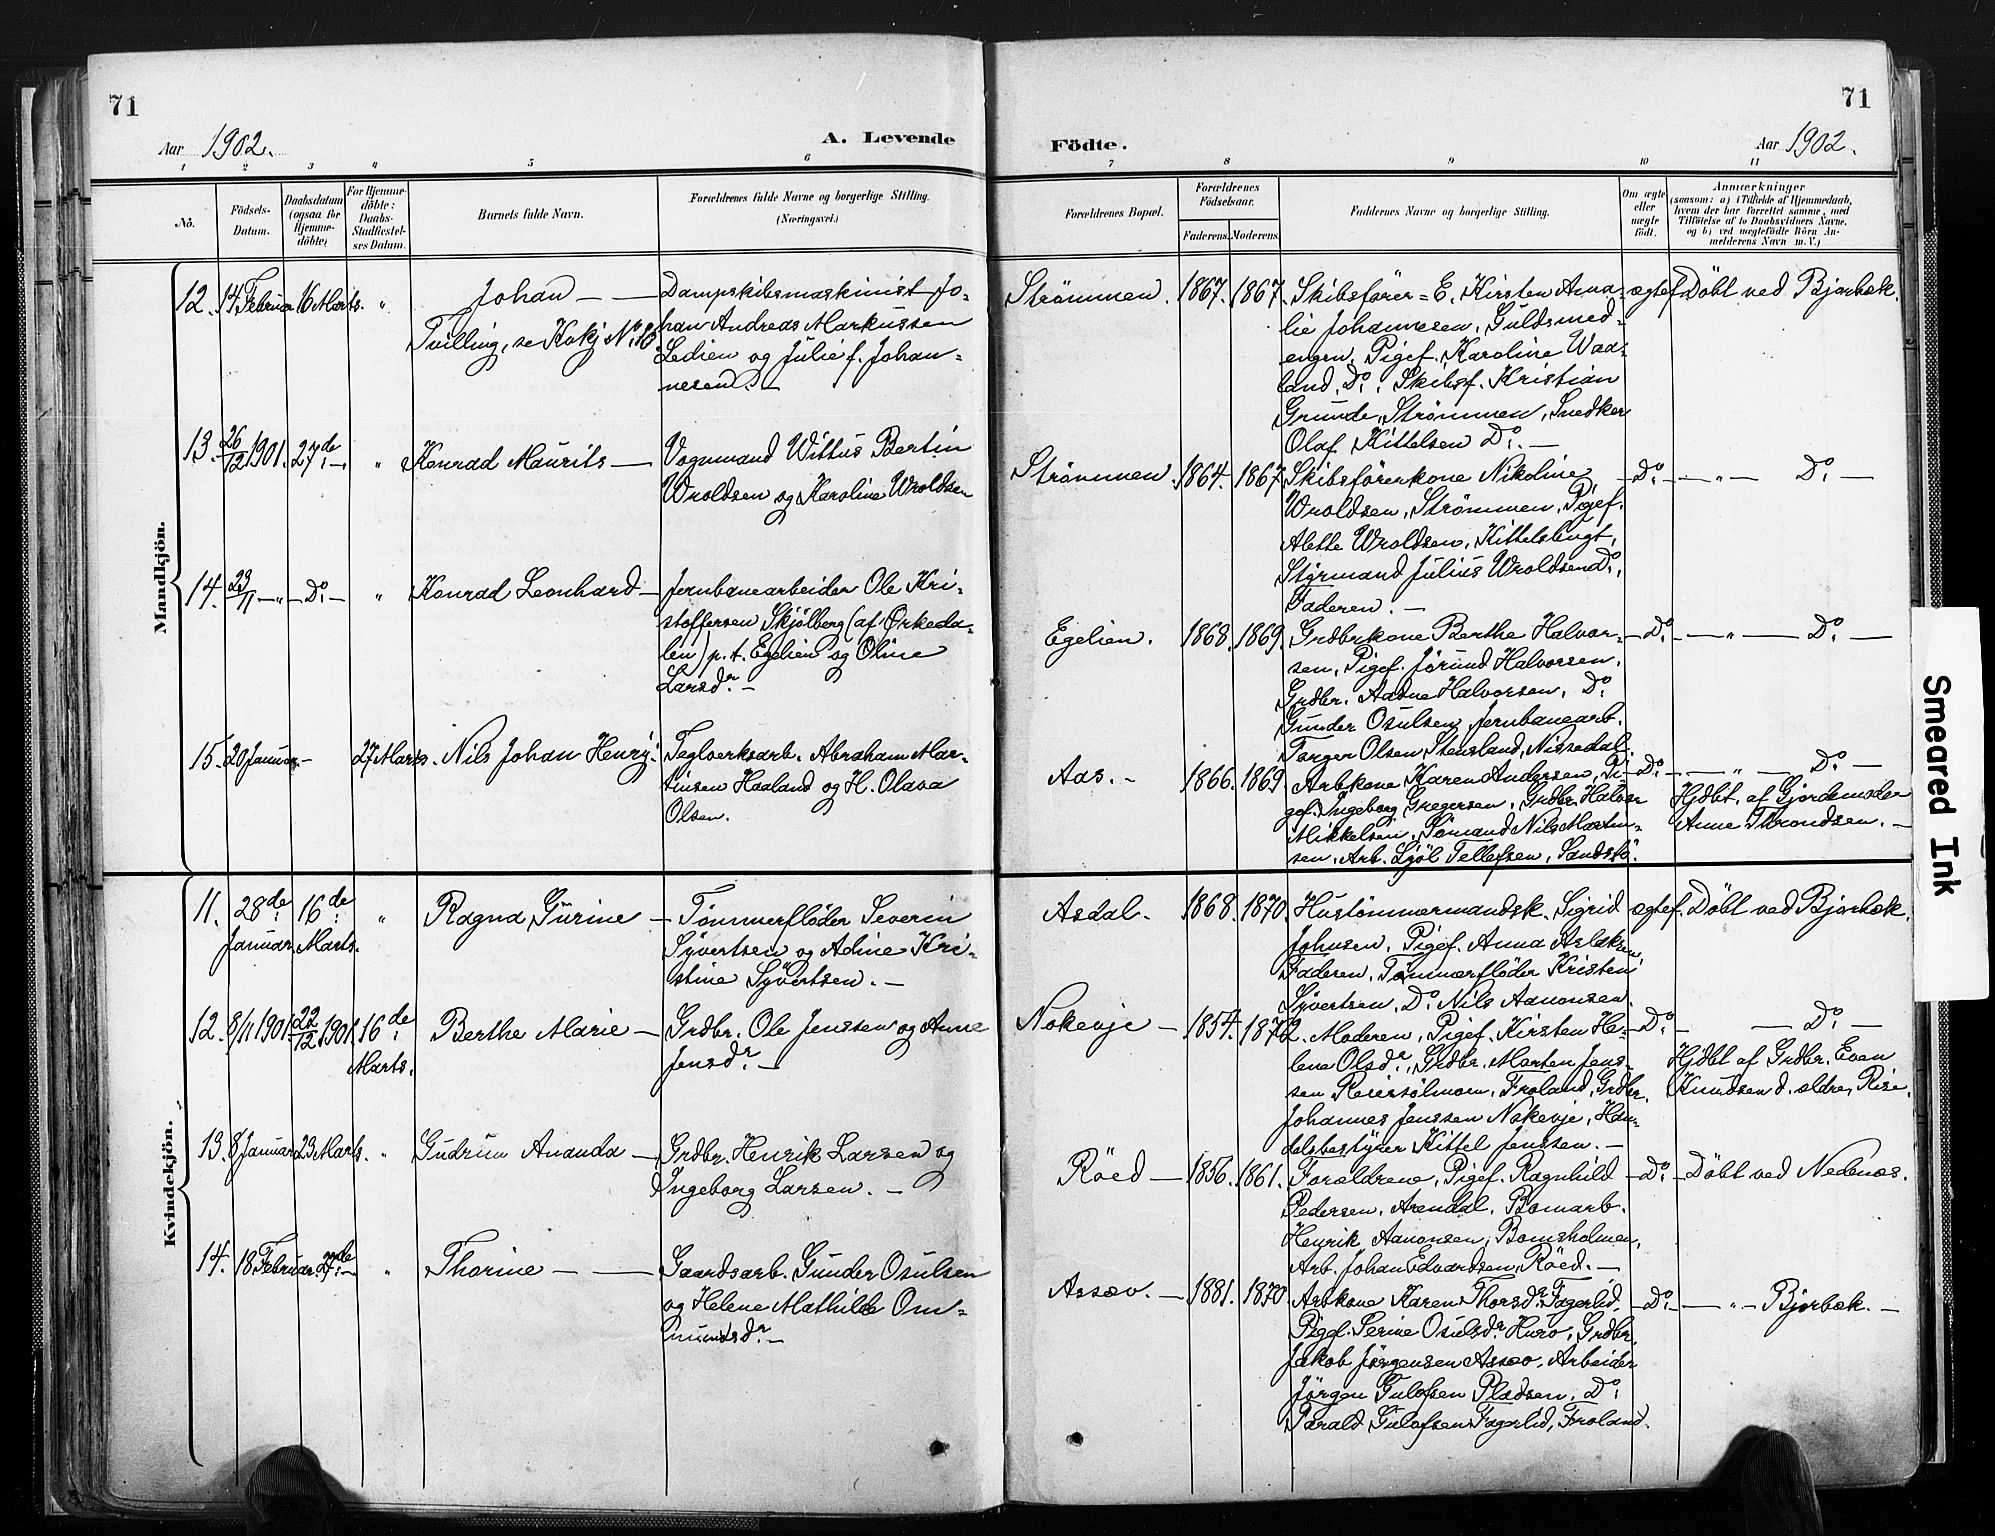 71
71
Aar 1902.
A. Levende
Födte.
Aar 1902.
1 2 3 4 5 6 7 8 9 10 11
No.
Födsels-
Datum.
Daabsdatum
(ogsaa for
Hjemme-
döbte)
For Hjemme-
döbte:
Daabs-
Stadfæstel-
ses Datum.
Barnets fulde Navn.
Forældrenes fulde Navne og borgerlige Stilling.
(Næringsvei.)
Forældrenes Bopæl.
Forældrenes
Födselsaar.
Faderens. Moderens.
Faddernes Navne og borgerlige Stilling.
Om ægte
eller
uægte
födt.
Anmærkninger
(saasom: a) i Tilfælde af Hjemmedaab,
hvem der har forrettet samme, med
Tilföielse af to Daabsvidners Navne.
og b) ved uægtefödte Börn An-
melderens Navn m. V.)
Mandkjön.
12. 14 Februar 16 Marts. "
Johan
Tvilling, se Kvkj No 10.
Dampskibsmaskinist Jo-
han Andreas Markussen
Ledien og Julie f. Johan-
nesen. —
Strømmen. 1867. 1867.
Skibsfører-E. Kirsten Ama-
lie Johannesen, Guldsmed-
engen, Pigef. Karoline Waa-
land, Do., Skibsf. Kristian
Grunde, Strømmen, Snedker
Olaf Kittelsen Do. —
ægtef. Döbt ved Bjorbæk.
13. 26/12 1901. 27de — "
Konrad Maurits —
Vognmand Wittus Bertin
Wroldsen og Karoline Wroldsen
Strømmen. 1864. 1867.
Skibsførerkone Nikoline
Wroldsen, Strømmen, Pigef.
Alette Wroldsen, Kittelsbugt,
Styrmand Julius Wroldsen Do.,
Faderen. —
— Do — " — Do. —
14. 23/11 — " — Do — "
Konrad Leonhard —
Jernbanearbeider Ole Kri-
stoffersen Skjølberg (af Orkeda-
len) p.t. Egelien og Oline
Larsdr. —
Egelien. 1868. 1869.
Grdbrkone Berthe Halvor-
sen, Pigef. Jörund Halvorsen,
Grdbr. Aadne Halvorsen, Do.
Gunder Osulsen, Jernbanearb.
Targer Olsen Stensland, Nissedal.
— Do — " — Do. —
15. 20 Januar — 27 Marts.
Nils Johan Henry.
Teglverksarb. Abraham Mar-
tinsen Haaland og H. Olava
Olsen.
Aas. — 1866. 1869.
Arbkone Karen Andersen, Pi-
gef. Ingeborg Gregersen, Grdbr. Halvor
Mikkelsen, Sømand Nils Martin-
sen, Arb. Ljöl Tellefsen, Sandstö.
— Do — " — Do. —
Hjdbt. af Gjordemoder
Anne Throndsen. —
Kvindekjön.
11. 28de Januar 16de Marts. "
Ragna Gurine —
Tømmerfløder Severin
Syvertsen og Adine Kri-
stine Syvertsen. —
Asdal. — 1868. 1870.
Hustømmermandsk. Sigrid
Johnsen, Pigef. Anna Aslaksen,
Faderen, Tømmerfløder Kristen
Syvertsen, Do. Nils Aanonsen.
ægtef. Döbt ved Bjorbæk.
12. 8/11 1901. 22/12 1901. 16de Marts.
Berthe Marie —
Grdbr. Ole Jenssen og Anne
Jensdr. —
Nokevje — 1854. 1872.
Moderen, Pigef. Kirsten He-
lene Olsdr., Grdbr. Morten Jens-
sen Reiersølmoen, Froland, Grdbr.
Johannes Jenssen Nokevje, Han-
delsbestyrer Kittel Jenssen. —
— Do — — Do. —
Hjdbt af Grdbr. Even
Knudsen d. ældre, Rise.
13. 8 Januar 23 Marts. "
Gudrun Ananda —
Grdbr. Henrik Larsen og
Ingeborg Larsen. —
Röed — 1856. 1861.
Forældrene, Pigef. Ragnhild
Pedersen, Arendal, Bomarb.
Henrik Aanonsen, Bomsholmen,
Arb. Johan Edvardsen, Röed. —
— Do — Döbt ved Nedenæs.
14. 18 Februar. 27de — "
Thorine — —
Gaardsarb. Gunder Osulsen
og Helene Mathilde Om-
mundsdr. —
Assæv. — 1881. 1870.
Arbkone Karen Thorsdr. Fagerlid,
Pigef. Serine Osulsdr. Huro, Grdbr.
Jakob Jørgensen Assæv, Arbeider
Jørgen Gulofsen Pladsen, Do.
Parald Gulofsen Fagerlid, Froland.
— Do — " — Bjorbæk. —
Smeared Ink